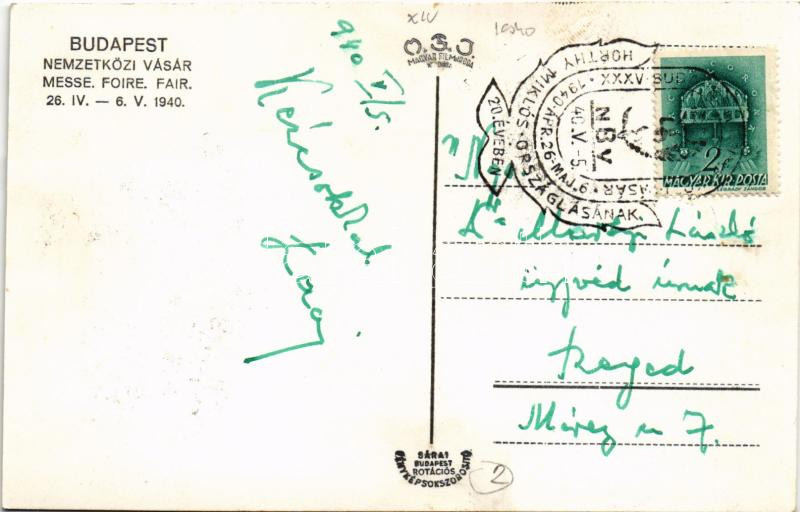 BUDAPEST
NEMZETKÖZI VÁSÁR
MESSE. FOIRE. FAIR.
26. IV. — 6. V. 1940.
940 V/5.
Kézcsókkal
XIV
1940
O.S.J.
MAGYAR FILMIRODA
HORTHY MIKLÓS ORSZÁGLÁSÁNAK
20. ÉVÉBEN
1940 ÁPR. 26-MÁJ. 6.
NBV
40. V. 5
2f
MAGYAR KIR. POSTA
László
ügyvéd úrnak
Szeged
u 7.
SÁRAI
BUDAPEST
ROTÁCIÓS
FÉNYKÉPSOKSZOROSÍTÓ
2